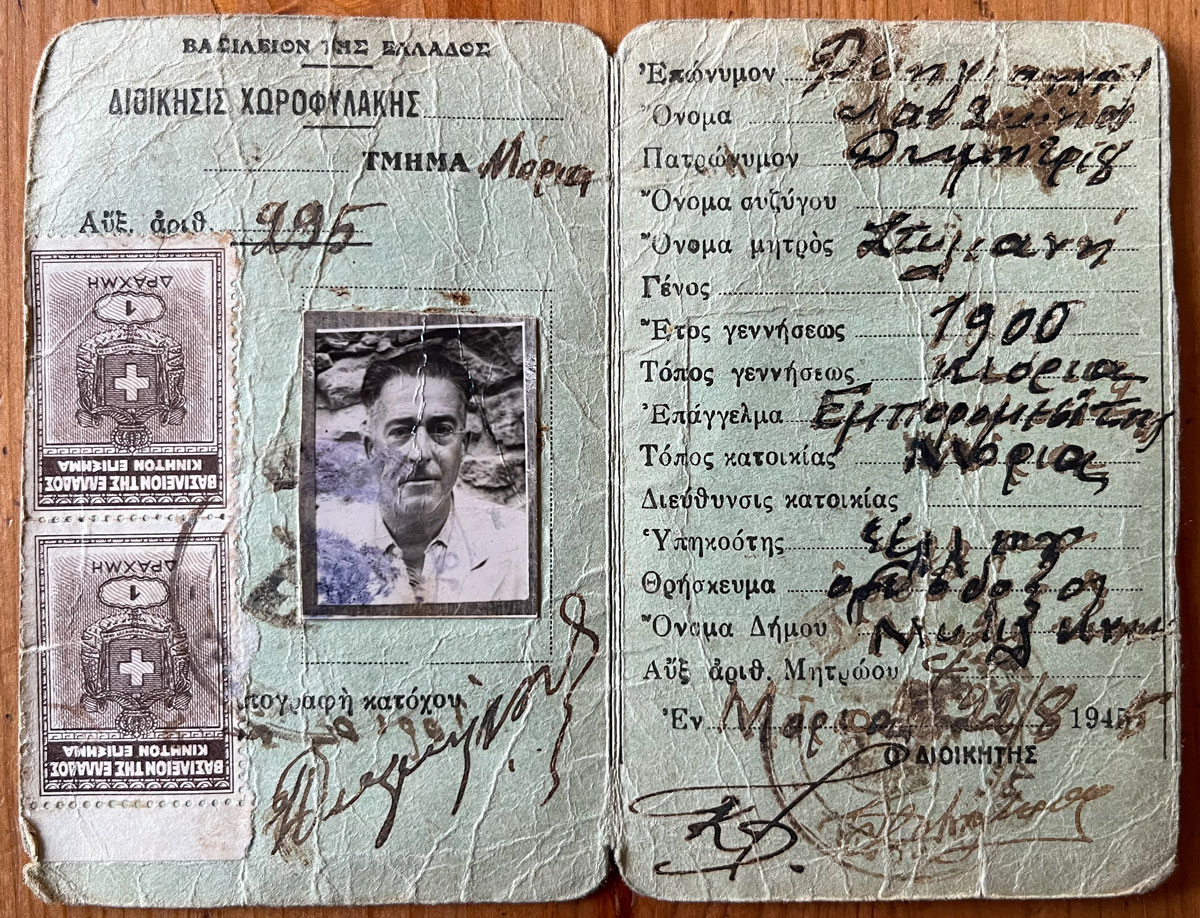 ΒΑΣΙΛΕΙΟΝ ΤΗΣ ΕΛΛΑΔΟΣ
ΔΙΟΙΚΗΣΙΣ ΧΩΡΟΦΥΛΑΚΗΣ
ΤΜΗΜΑ Μόρια
Αὔξ. ἀριθ. 295
1
ΔΡΑΧΜΗ
ΒΑΣΙΛΕΙΟΝ ΤΗΣ ΕΛΛΑΔΟΣ
ΚΙΝΗΤΟΝ ΕΠΙΣΗΜΑ
1
ΔΡΑΧΜΗ
ΒΑΣΙΛΕΙΟΝ ΤΗΣ ΕΛΛΑΔΟΣ
ΚΙΝΗΤΟΝ ΕΠΙΣΗΜΑ
πογραφὴ κατόχου
Ἐπώνυμον
Ὄνομα
Πατρώνυμον Δημητρίου
Ὄνομα συζύγου
Ὄνομα μητρὸς Στυλιανή
Γένος
Ἔτος γεννήσεως 1900
Τόπος γεννήσεως Μόρια
Ἐπάγγελμα Εμπορομεσίτης
Τόπος κατοικίας Μόρια
Διεύθυνσις κατοικίας
Ὑπηκοότης
Θρήσκευμα ορθόδοξος
Ὄνομα Δήμου
Αὔξ ἀριθ. Μητρώου
Ἐν Μόρια 22/8 1945
Ο ΔΙΟΙΚΗΤΗΣ